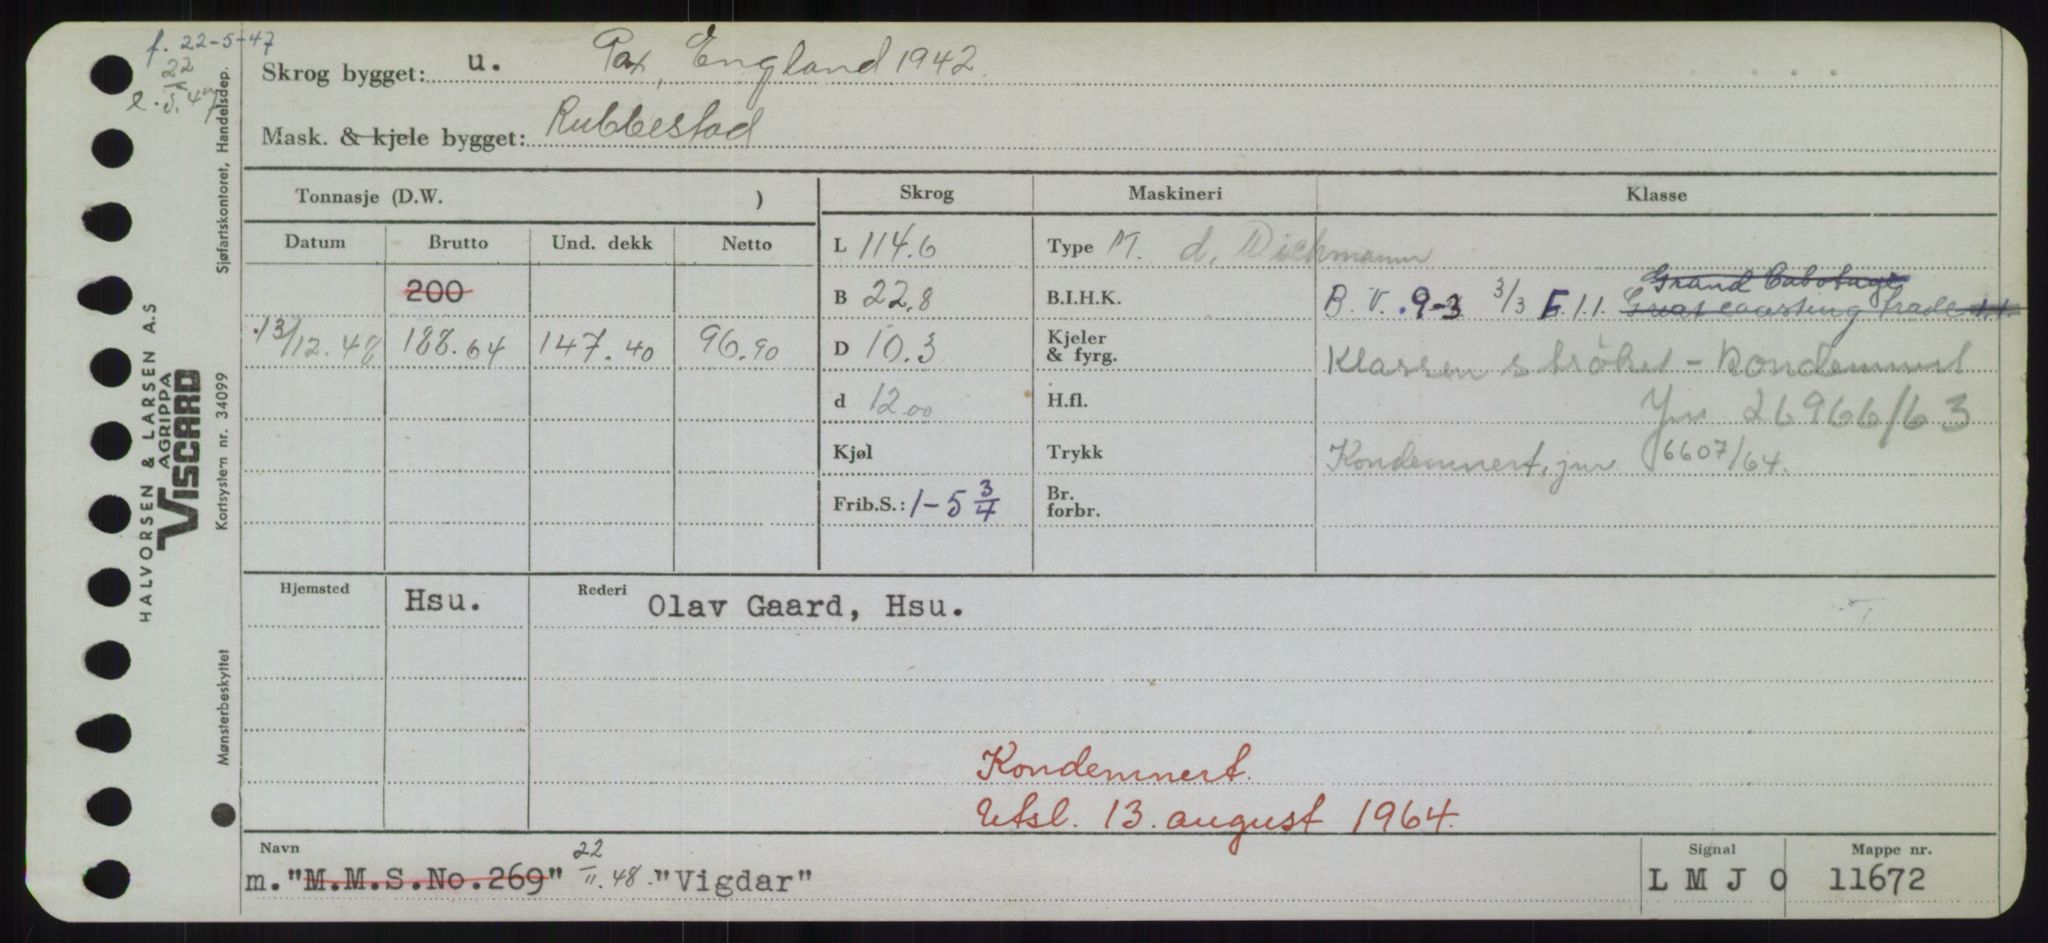 f. 22-5-47
22
e. 5.47
Skrog bygget: u. Par, England 1942
Mask. & kjele bygget: Rubbestad
Tonnasje (D.W. )
Skrog Maskineri Klasse
Datum Brutto Und. dekk Netto
L 114.6 Type M. d.
200
B 22.8 B.I.H.K.
Grand Cabotage
B. V. .9-3 3/3 F. 1.1. Great coasting trade
13/12.48 188.64 147.40 96.90
D 10.3 Kjeler & fyrg.
Klassen strøket - Kondemnert
d 12.00 H.fl.
Jnr 26966/63
Kjøl Trykk
Kondemnert, jnr 6607/64.
Frib.S.: 1-5 3/4 Br. forbr.
Hjemsted Hsu. Rederi Olav Gaard, Hsu.
Kondemnert.
Utsl. 13. august 1964.
Navn Signal Mappe nr.
m. "M.M.S.No.269" 22/11.48. "Vigdar" L M J O 11672
HALVORSEN & LARSEN A.S
AGRIPPA
VISCARD
Sjøfartskontoret, Handelsdep.
Kortsystem nr. 34099
Mønsterbeskyttet